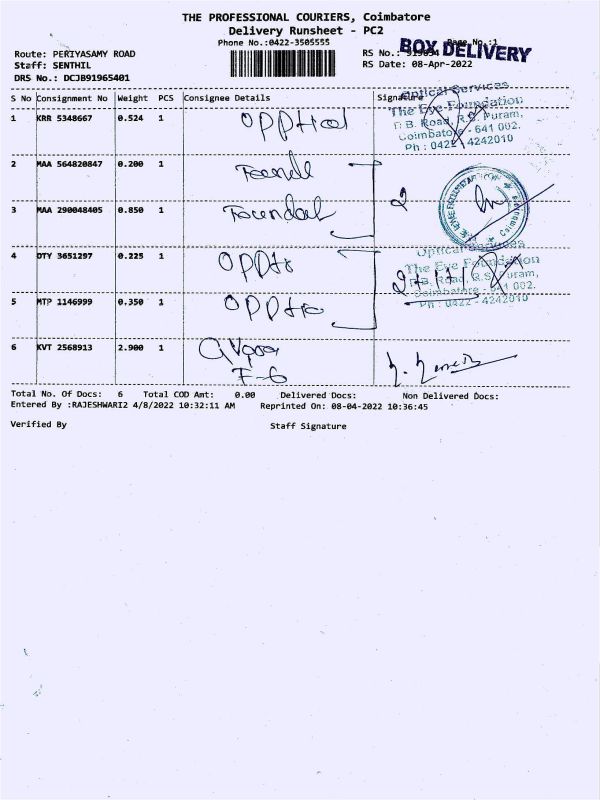 THE PROFESSIONAL COURIERS, Coimbatore
Delivery Runsheet - PC2
Phone No.:0422-3505555
Page No.:1
BOX DELIVERY
Route: PERIYASAMY ROAD
RS No.:
Staff: SENTHIL
RS Date: 08-Apr-2022
DRS No.: DCJB91965401
S No Consignment No Weight PCS Consignee Details Signature
Optical Services
The Eye Foundation
D.B. Road, R.S. Puram,
Coimbatore - 641 002.
Ph : 0422 4242010
1 KRR 5348667 0.524 1
2 MAA 564820847 0.200 1
3 MAA 290048405 0.850 1 2
4 DTY 3651297 0.225 1
Optical Services
The Eye Foundation
D.B. Road, R.S. Puram,
Coimbatore - 641 002.
Ph : 0422 - 4242010
5 MTP 1146999 0.350 1
6 KVT 2568913 2.900 1
F-6
Total No. Of Docs: 6 Total COD Amt: 0.00 Delivered Docs: Non Delivered Docs:
Entered By :RAJESHWARI2 4/8/2022 10:32:11 AM Reprinted On: 08-04-2022 10:36:45
Verified By Staff Signature